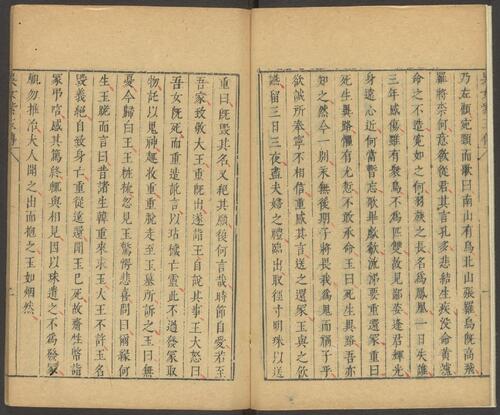 乃左顧宛頸而歌曰南山有烏北山張羅烏旣高飛
羅將奈何意欲從君其言孔多悲結生疾沒命黃壚
命之不造寃如之何羽族之長名爲鳳凰一日失雄
三年感傷雖有衆鳥不爲匹雙故見鄙姿逢君輝光
身遠心近何當暫忘歌畢歔欷流涕要重還冢重曰
死生異路懼有尤愆不敢承命玉曰死生異路吾亦
知之然今一別永無後期子將畏我爲鬼而禍子乎
欲誠所奉寧不相信重感其言送之還冢玉與之飲
讌留三日三夜盡夫婦之禮臨出取徑寸明珠以送
重曰旣毁其名又絕其願復何言哉時節自愛若至
吾家致敬大王重旣出遂詣王自說其事王大怒曰
吾女旣死而重造訛言以玷穢亡靈此不過發冢取
物託以鬼神趣收重重脫走至玉墓所訴之玉曰無
憂今歸白王王粧梳忽見玉驚愕悲喜問曰爾緣何
生玉跪而言曰昔諸生韓重來求玉大王不許玉名
毁義絕自致身亡重從遠還聞玉已死故齎牲幣詣
冢弔唁感其篤終輒與相見因以珠遺之不爲發冢
願勿推治夫人聞之出而抱之玉如烟然